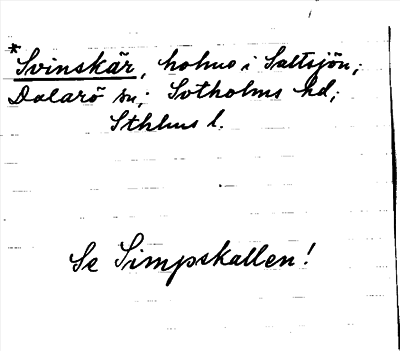 *Svinskär, holme i Saltsjön;
Dalarö sn; Sotholms hd;
Sthlms l.
Se Simpskallen!